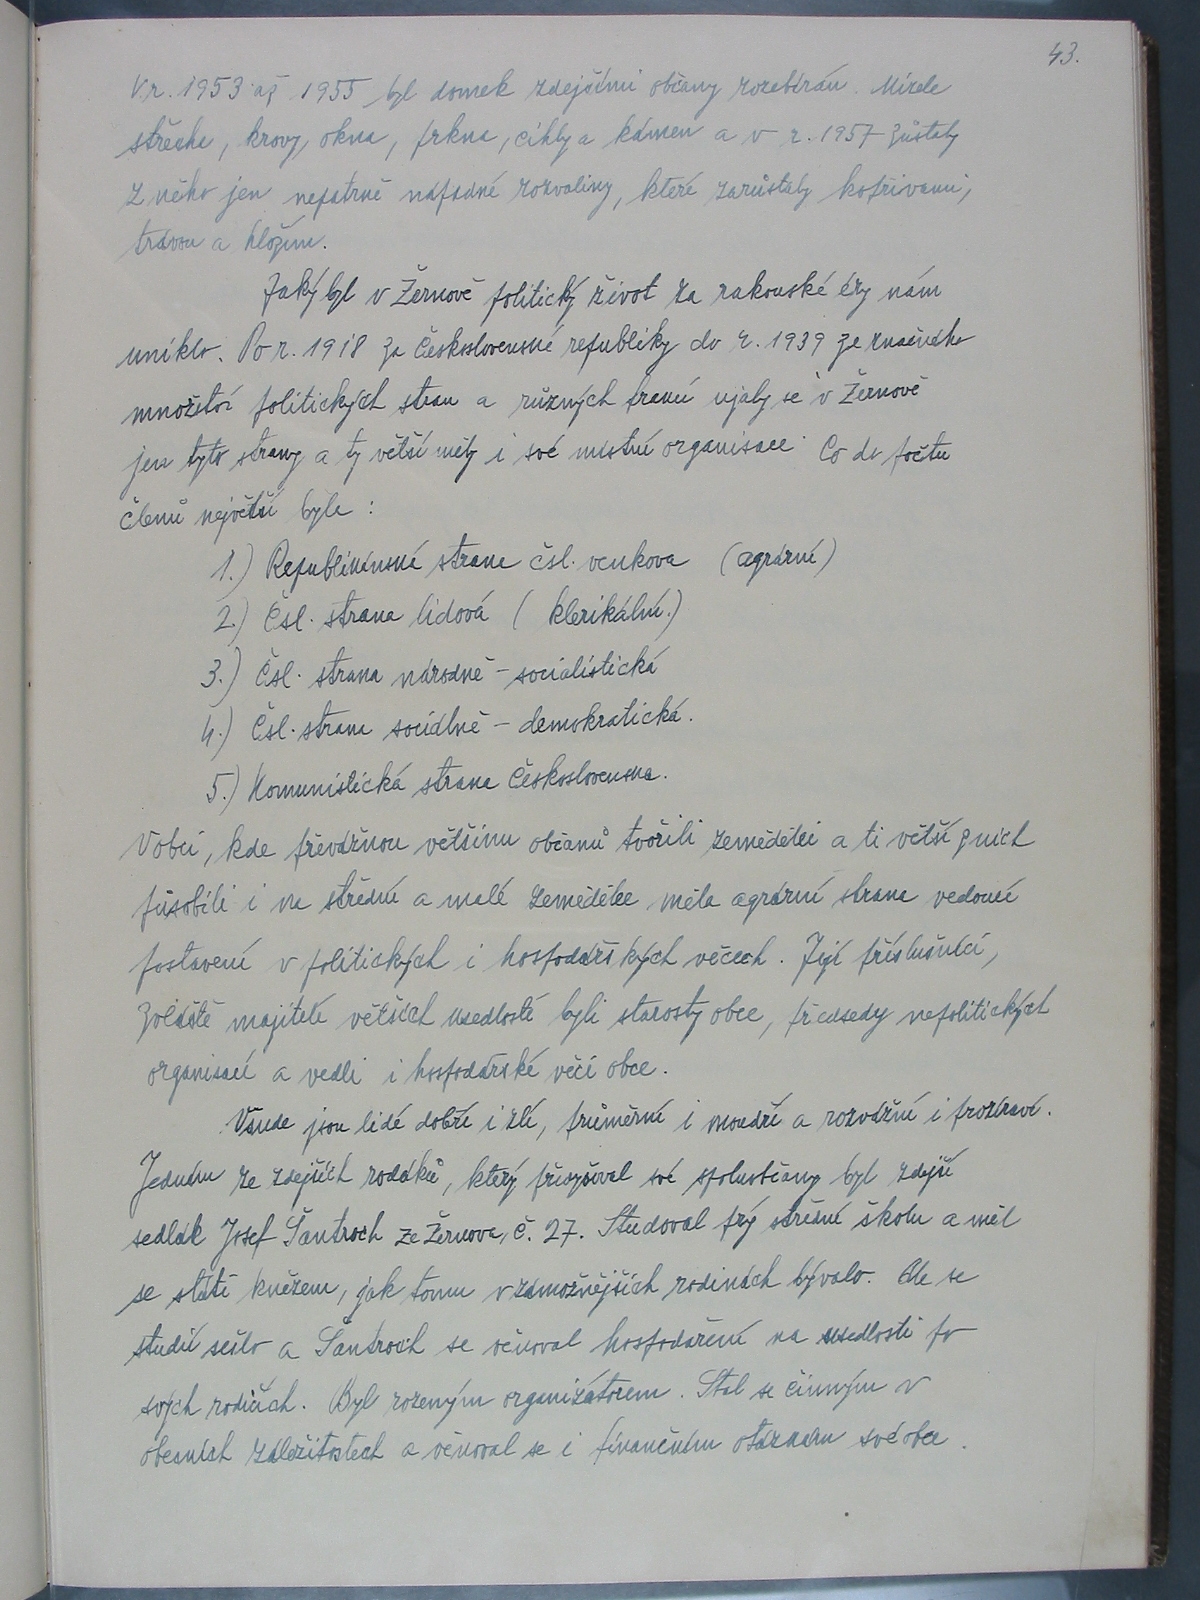 43.
V r. 1953 až 1955 byl domek zdejšími občany rozebírán. Mizela
střecha, krovy, okna, prkna, cihly a kámen a v r. 1957 zůstaly
z něho jen nepatrně nápadné rozvaliny, které zarůstaly kopřivami,
trávou a hložím.
Jaký byl v Žernově politický život za rakouské éry nám
uniklo. Po r. 1918 za Československé republiky do r. 1939 ze značného
množství politických stran a různých frakcí ujaly se v Žernově
jen tyto strany a ty větší měly i své místní organisace. Co do počtu
členů největší byla :
1.) Republikánská strana čsl. venkova (agrární)
2.) Čsl. strana lidová ( klerikální.)
3.) Čsl. strana národně - socialistická
4.) Čsl. strana sociálně - demokratická.
5.) Komunistická strana Československa.
V obci, kde převážnou většinu občanů tvořili zemědělci a ti větší z nich
působili i na střední a malé zemědělce měla agrární strana vedoucí
postavení v politických i hospodářských věcech. Její příslušníci,
zvláště majitelé větších usedlostí byli starosty obce, předsedy nepolitických
organisací a vedli i hospodářské věci obce.
Všude jsou lidé dobří i zlí, průměrní i moudří a rozvážní i prozíraví.
Jedním ze zdejších rodáků, který převyšoval své spoluobčany byl zdejší
sedlák Josef Šantroch ze Žernova, č. 27. Studoval prý střední školu a měl
se státi knězem, jak tomu v zámožnějších rodinách bývalo. Ale se
studií sešlo a Šantroch se věnoval hospodaření na usedlosti po
svých rodičích. Byl rozeným organizátorem. Stal se činným v
obecních záležitostech a věnoval se i finančním otázkám své obce.